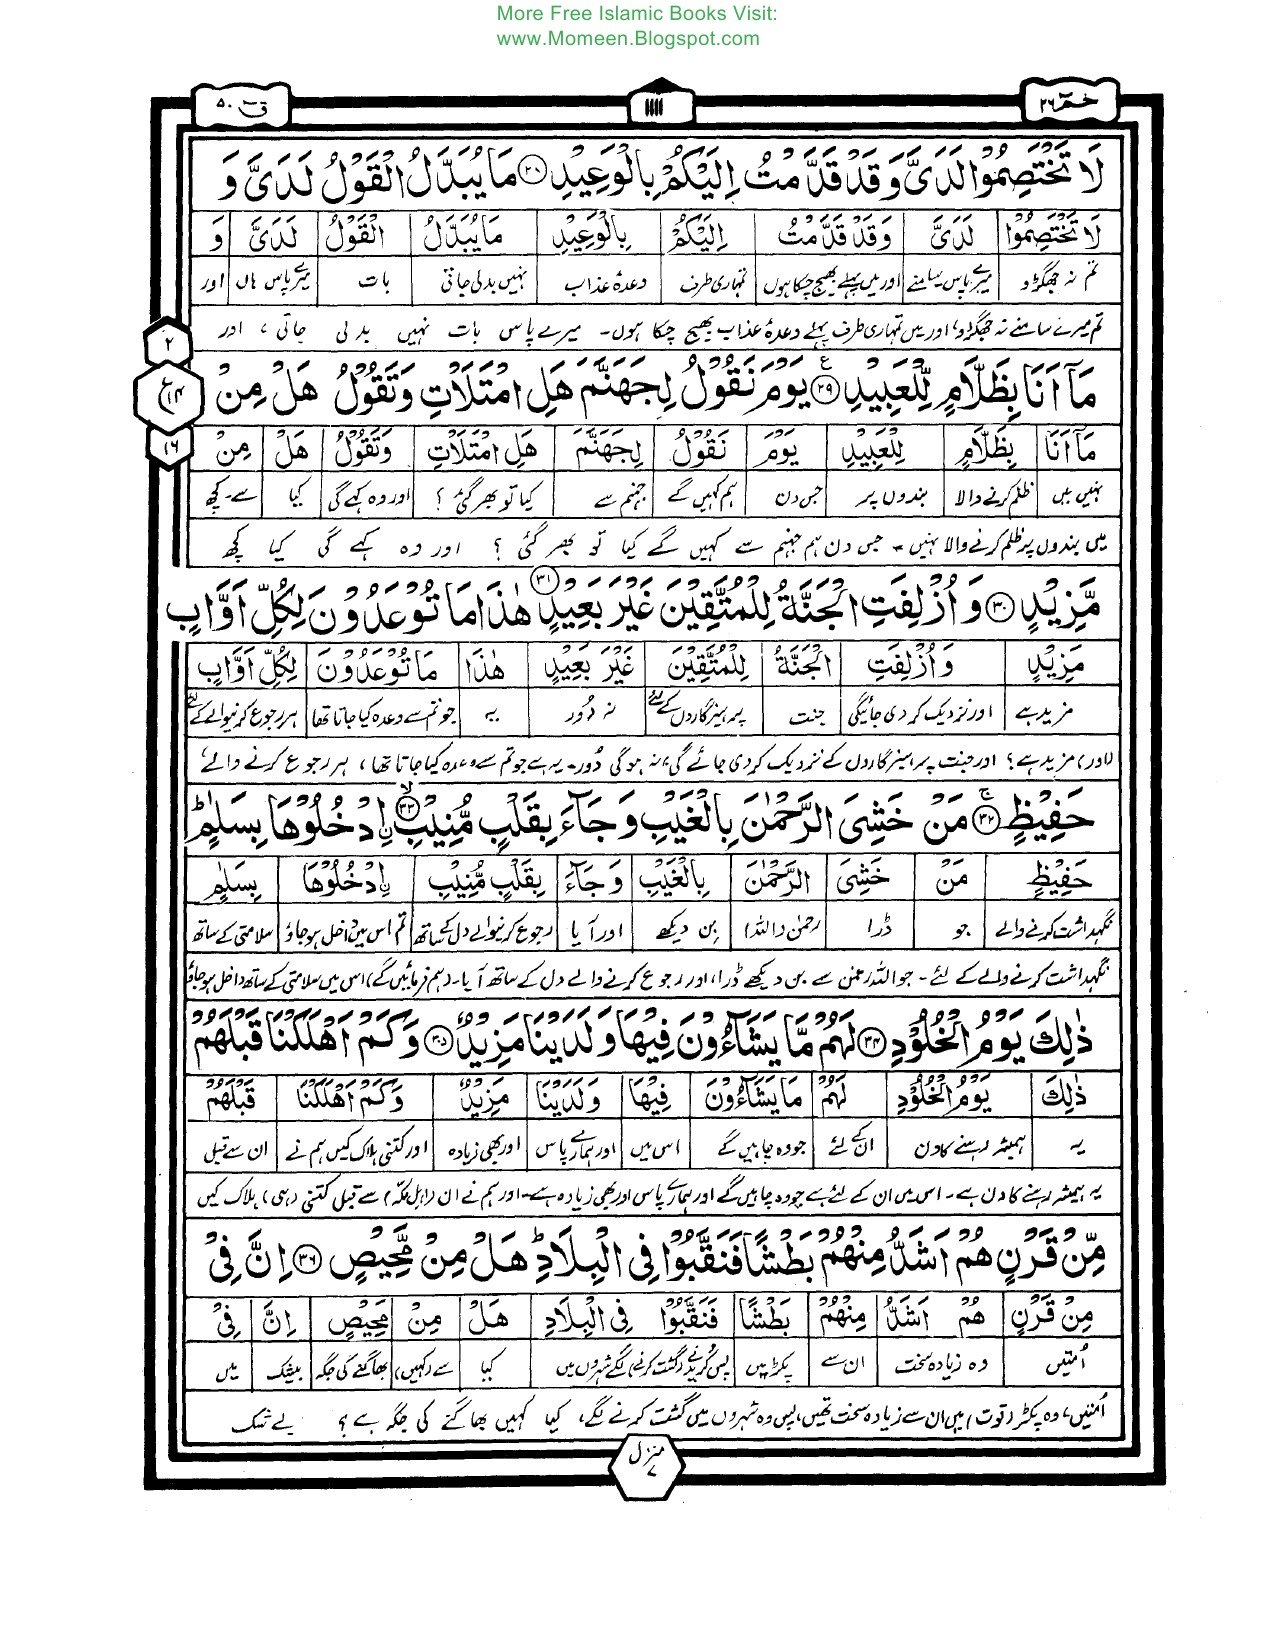 More Free Islamic Books Visit:
www.Momeen.Blogspot.com
حٰمٓ ۲۶
۱۱۱۱
قٓ ۵۰
لَا تَخْتَصِمُوْا لَدَیَّ وَ قَدْ قَدَّمْتُ اِلَیْكُمْ بِالْوَعِیْدِ ۲۸ مَا یُبَدَّلُ الْقَوْلُ لَدَیَّ وَ
لَا تَخْتَصِمُوْا لَدَیَّ وَقَدْ قَدَّمْتُ اِلَیْكُمْ بِالْوَعِیْدِ مَا یُبَدَّلُ الْقَوْلُ لَدَیَّ وَ
تم نہ جھگڑو میرے پاس سامنے اور میں پہلے بھیج چکا ہوں تمہاری طرف وعدۂ عذاب نہیں بدلی جاتی بات میرے پاس ہاں اور
تم میرے سامنے نہ جھگڑو، اور میں تمہاری طرف پہلے وعدۂ عذاب بھیج چکا ہوں۔ میرے پاس بات نہیں بدلی جاتی، اور
۲
ع ۱۴
۱۶
مَاۤ اَنَا بِظَلَّامٍ لِّلْعَبِیْدِ ۲۹ یَوْمَ نَقُوْلُ لِجَهَنَّمَ هَلِ امْتَلَاْتِ وَتَقُوْلُ هَلْ مِنْ
مَاۤ اَنَا بِظَلَّامٍ لِلْعَبِیْدِ یَوْمَ نَقُوْلُ لِجَهَنَّمَ هَلِ امْتَلَاْتِ وَتَقُوْلُ هَلْ مِنْ
نہیں میں ظلم کرنے والا بندوں پر جس دن ہم کہیں گے جہنم سے کیا تو بھر گئی؟ اور وہ کہے گی کیا سے۔ کچھ
میں بندوں پر ظلم کرنے والا نہیں۔ جس دن ہم جہنم سے کہیں گے کیا تو بھر گئی؟ اور وہ کہے گی کیا کچھ
مَّزِیْدٍ ۳۰ وَ اُزْلِفَتِ الْجَنَّةُ لِلْمُتَّقِیْنَ غَیْرَ بَعِیْدٍ ۳۱ هٰذَا مَا تُوْعَدُوْنَ لِكُلِّ اَوَّابٍ
مَزِیْدٍ وَاُزْلِفَتِ الْجَنَّةُ لِلْمُتَّقِیْنَ غَیْرَ بَعِیْدٍ هٰذَا مَا تُوْعَدُوْنَ لِكُلِّ اَوَّابٍ
مزید ہے اور نزدیک کر دی جائیگی جنت پرہیزگاروں کے لئے نہ دُور یہ جو تم سے وعدہ کیا جاتا تھا ہر رجوع کرنیوالے کے لئے
(اور) مزید ہے؟ اور جنت پرہیزگاروں کے نزدیک کر دی جائے گی، نہ ہوگی دُور۔ یہ ہے جو تم سے وعدہ کیا جاتا تھا، ہر رجوع کرنے والے،
حَفِیْظٍ ۳۲ مَنْ خَشِیَ الرَّحْمٰنَ بِالْغَیْبِ وَ جَآءَ بِقَلْبٍ مُّنِیْبِ ۳۳ اِۨدْخُلُوْهَا بِسَلٰمٍ ؕ
حَفِیْظٍ مَنْ خَشِیَ الرَّحْمٰنَ بِالْغَیْبِ وَ جَآءَ بِقَلْبٍ مُّنِیْبِ اِۨدْخُلُوْهَا بِسَلٰمٍ
نگہداشت کرنے والے جو ڈرا رحمٰن (اللہ) بن دیکھے اور آیا رجوع کرنیوالے دل کے ساتھ تم اس میں داخل ہو جاؤ سلامتی کے ساتھ
نگہداشت کرنے والے کے لئے۔ جو اللہ رحمٰن سے بن دیکھے ڈرا، اور رجوع کرنے والے دل کے ساتھ آیا۔ (ہم فرمائیں گے) اس میں سلامتی کے ساتھ داخل ہو جاؤ
ذٰلِكَ یَوْمُ الْخُلُوْدِ ۳۴ لَهُمْ مَّا یَشَآءُوْنَ فِیْهَا وَلَدَیْنَا مَزِیْدٌ ۳۵ وَكَمْ اَهْلَكْنَا قَبْلَهُمْ
ذٰلِكَ یَوْمُ الْخُلُوْدِ لَهُمْ مَا یَشَآءُوْنَ فِیْهَا وَلَدَیْنَا مَزِیْدٌ وَكَمْ اَهْلَكْنَا قَبْلَهُمْ
یہ ہمیشہ رہنے کا دن ان کے لئے جو وہ چاہیں گے اس میں اور ہمارے پاس اور بھی زیادہ اور کتنی ہلاک کیں ہم نے ان سے قبل
یہ ہمیشہ رہنے کا دن ہے۔ اس میں ان کے لئے ہے جو وہ چاہیں گے اور ہمارے پاس اور بھی زیادہ ہے۔ اور ہم نے ان (اہل مکہ) سے قبل کتنی (ہی) ہلاک کیں
مِّنْ قَرْنٍ هُمْ اَشَدُّ مِنْهُمْ بَطْشًا فَنَقَّبُوْا فِی الْبِلَادِ ؕ هَلْ مِنْ مَّحِیْصٍ ۳۶ اِنَّ فِیْ
مِنْ قَرْنٍ هُمْ اَشَدُّ مِنْهُمْ بَطْشًا فَنَقَّبُوْا فِی الْبِلَادِ هَلْ مِنْ مَحِیْصٍ اِنَّ فِیْ
اُمتیں وہ زیادہ سخت ان سے پکڑ میں پس کریدنے (گشت کرنے) لگے شہروں میں کیا سے (کہیں) بھاگنے کی جگہ بیشک میں
اُمتیں، وہ پکڑ (قوت) میں ان سے زیادہ سخت تھیں، پس وہ شہروں میں گشت کرنے لگے، کیا کہیں بھاگنے کی جگہ ہے؟ بے شک
منزل ۷